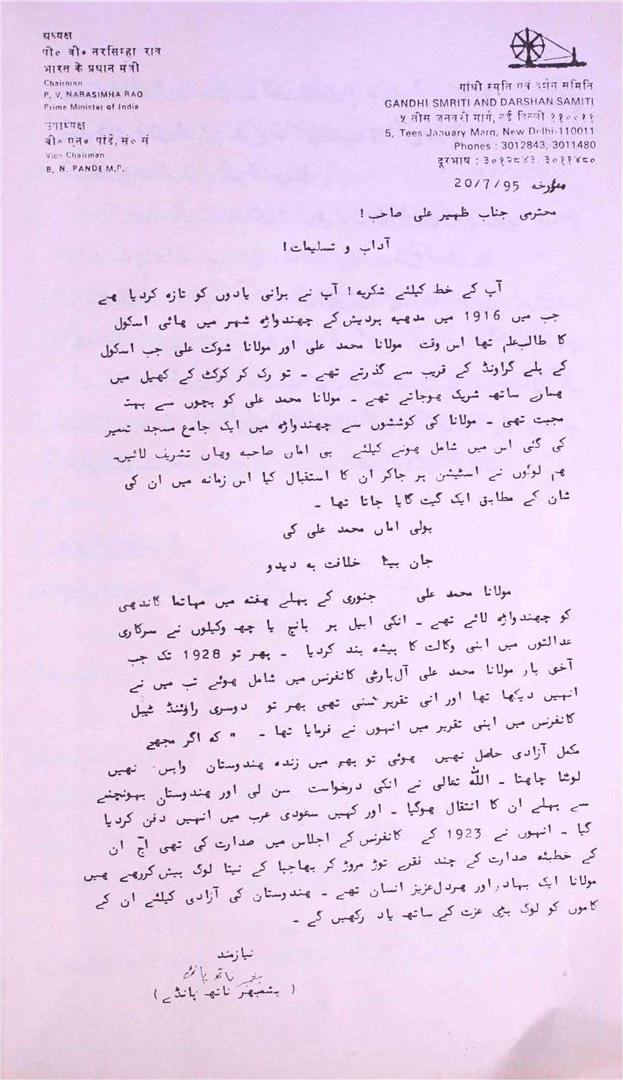 अध्यक्ष
पी० वी० नरसिम्हा राव
भारत के प्रधान मंत्री
Chairman
P. V. NARASIMHA RAO
Prime Minister of India
उपाध्यक्ष
बी० एन० पांडे, सं० सं
Vice Chairman
B. N. PANDE M.P.
गांधी स्मृति एवं दर्शन समिति
GANDHI SMRITI AND DARSHAN SAMITI
५ तीस जनवरी मार्ग, नई दिल्ली ११००११
5, Tees January Marg, New Delhi-110011
Phones : 3012843, 3011480
दूरभाष : ३०१२८४३, ३०११४८०
مورخہ 20/7/95
محترمی جناب ظہیر علی صاحب!
آداب و تسلیمات!
آپ کے خط کیلئے شکریہ! آپ نے پرانی یادوں کو تازہ کردیا ہے
جب میں 1916 میں مدھیہ پردیش کے چھندواڑہ شہر میں ھائی اسکول
کا طالبعلم تھا اس وقت مولانا محمد علی اور مولانا شوکت علی جب اسکول
کے پلے گراونڈ کے قریب سے گذرتے تھے ۔ تو رک کر کرکٹ کے کھیل میں
ھمارے ساتھ شریک ھوجاتے تھے ۔ مولانا محمد علی کو بچوں سے بہت
محبت تھی ۔ مولانا کی کوششوں سے چھندواڑہ میں ایک جامع مسجد تعمیر
کی گئی اس میں شامل ھونے کیلئے بی اماں صاحبہ وھاں تشریف لائیں۔
ھم لوگوں نے اسٹیشن پر جاکر ان کا استقبال کیا اس زمانہ میں ان کی
شان کے مطابق ایک گیت گایا جاتا تھا ۔
بولی اماں محمد علی کی
جان بیٹا خلافت پہ دیدو
مولانا محمد علی جنوری کے پہلے ھفتہ میں مہاتما گاندھی
کو چھندواڑہ لائے تھے ۔ انکی اپیل پر پانچ یا چھ وکیلوں نے سرکاری
عدالتوں میں اپنی وکالت کا پیشہ بند کردیا ۔ پھر تو 1928 تک جب
آخری بار مولانا محمد علی آل پارٹی کانفرنس میں شامل ھوئے تب میں نے
انہیں دیکھا تھا اور انی تقریر سنی تھی پھر تو دوسری راؤنڈ ٹیبل
کانفرنس میں اپنی تقریر میں انہوں نے فرمایا تھا ۔ " کہ اگر مجھے
مکمل آزادی حاصل نہیں ھوئی تو پھر میں زندہ ھندوستان واپس نھیں
لوٹنا چاھتا ۔ اللہ تعالی نے انکی درخواست سن لی اور ھندوستان پھونچنے
سے پہلے ان کا انتقال ھوگیا ۔ اور کہیں سعودی عرب میں انہیں دفن کردیا
گیا ۔ انہوں نے 1923 کے کانفرنس کے اجلاس میں صدارت کی تھی آج ان
کے خطبئہ صدارت کے چند فقرے توڑ مروڑ کر بھاجپا کے نیتا لوگ پیش کررھے ھیں
مولانا ایک بہادر اور ھردل عزیز انسان تھے ۔ ھندوستان کی آزادی کیلئے ان کے
کاموں کو لوگ بڑی عزت کے ساتھ یاد رکھیں گے ۔
نیازمند
( بشمبھر ناتھ پانڈے )